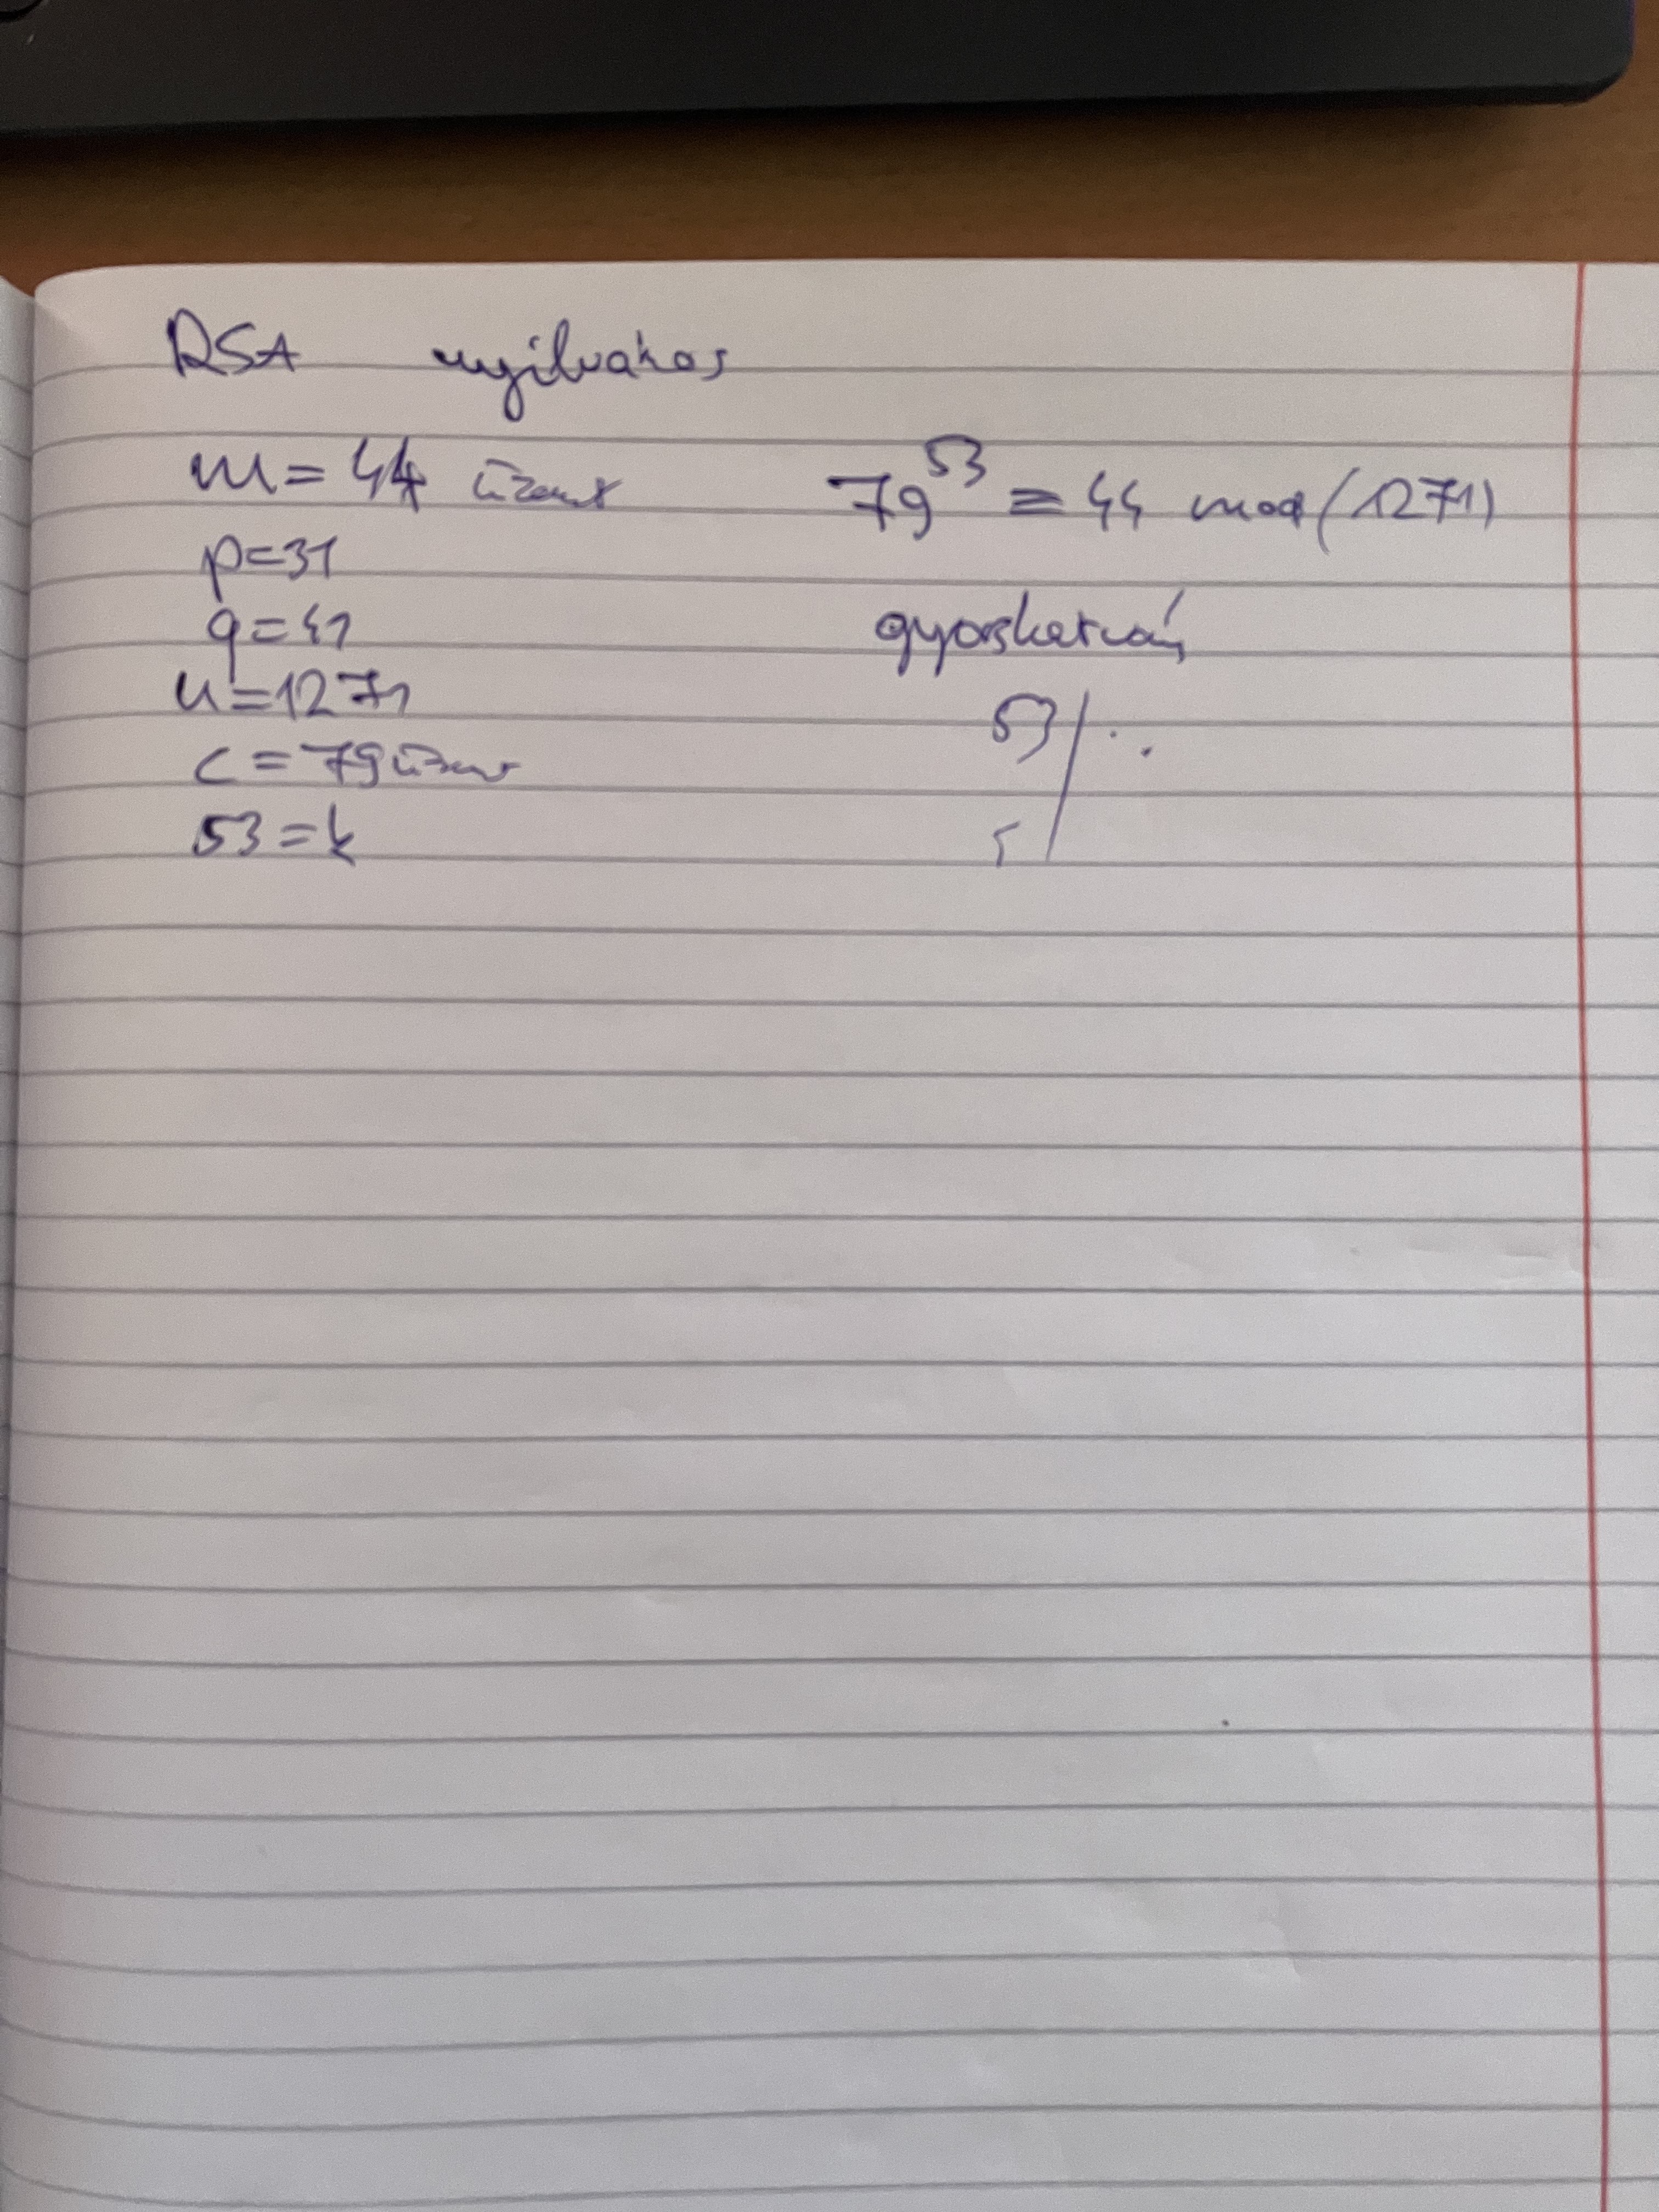 RSA nyilvános
m = 44 üzenet
p=31
q=41
n=1271
c = 79 üzenet
53=k
79^53 ≡ 44 mod (1271)
gyorshatvány
53/..